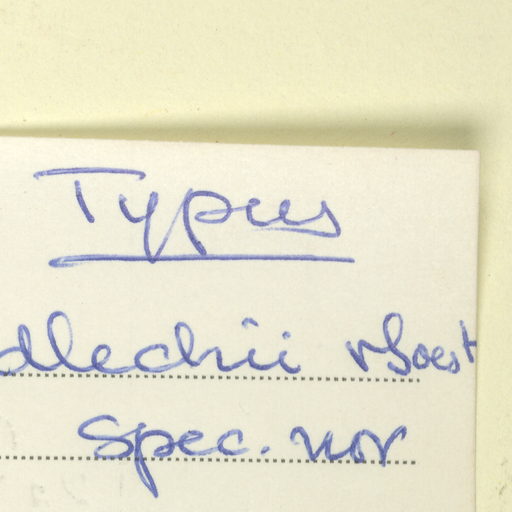 Typus
dlechii v Soest
Spec. nov